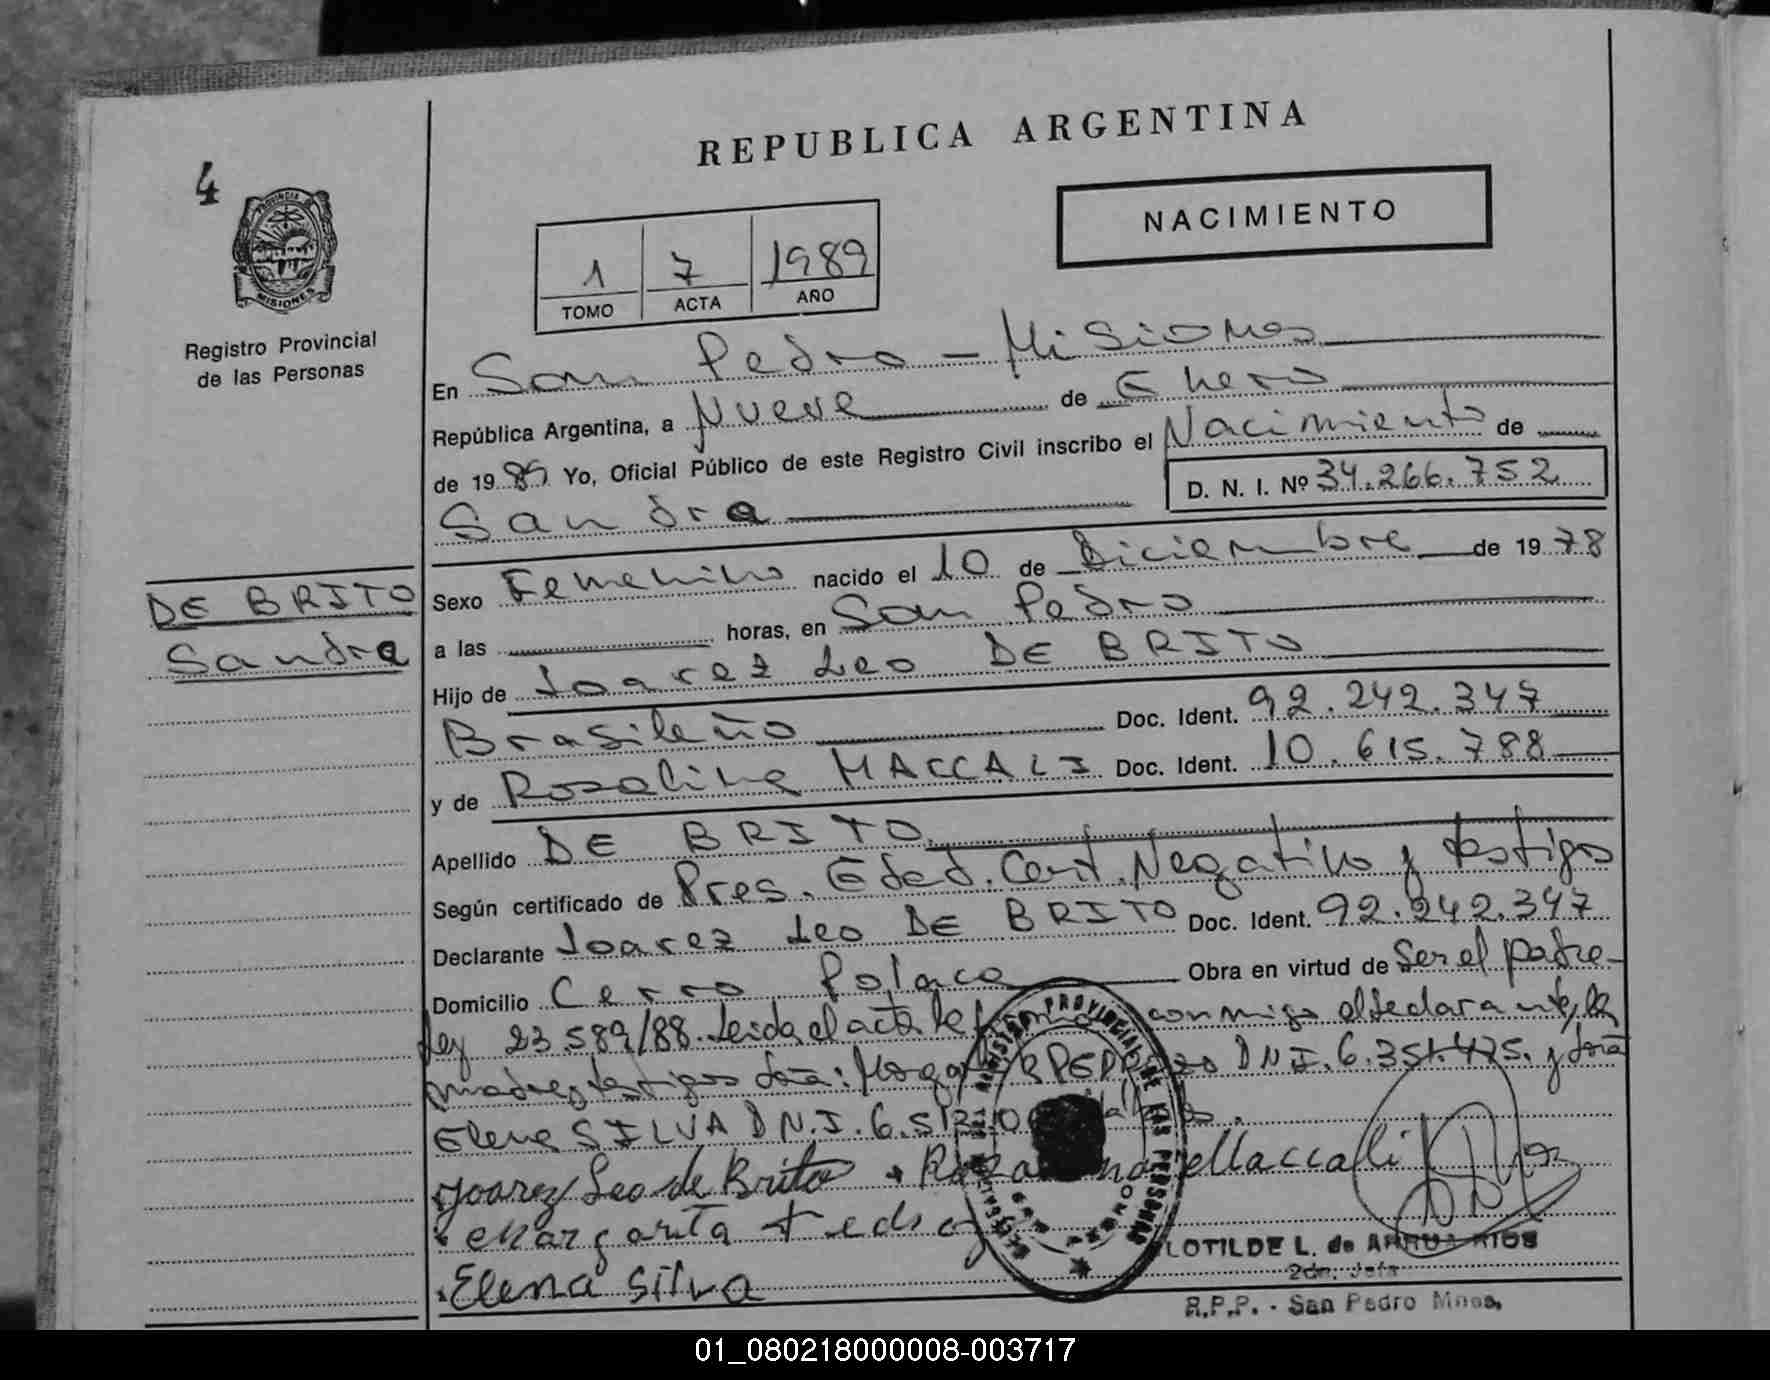 REPUBLICA ARGENTINA
4
PROVINCIA DE
MISIONES
Registro Provincial
de las Personas
NACIMIENTO
1 7 1989
TOMO ACTA AÑO
En San Pedro - Misiones
República Argentina, a Nueve de Enero
de 1989 Yo, Oficial Público de este Registro Civil inscribo el Nacimiento de
D. N. I. Nº 34.266.752
Sandra
DE BRITO
Sandra
Sexo Femenino nacido el 10 de Diciembre de 1978
a las horas, en San Pedro
Hijo de Joarez Leo DE BRITO
Brasileño Doc. Ident. 92.242.347
y de Rozalina MACCALI Doc. Ident. 10.615.788
Apellido DE BRITO
Según certificado de Pres. Edad. Cert. Negativo y testigos
Declarante Joarez Leo DE BRITO Doc. Ident. 92.242.347
Domicilio Cerro Polaco Obra en virtud de Ser el padre-
Ley 23.589/88. Leida el acta la conmigo el declarante, la
madre y testigos doña: DNI. 6.351.475. y doña
Elena SILVA DN.I.
Joarez Leo de Brito Maccalli
Margarita
Elena Silva
REGISTRO PROVINCIAL DE LAS PERSONAS
CLOTILDE L. de ARRUA RIOS
2da. Jefa
R.P.P. - San Pedro Mnes.
01_080218000008-003717